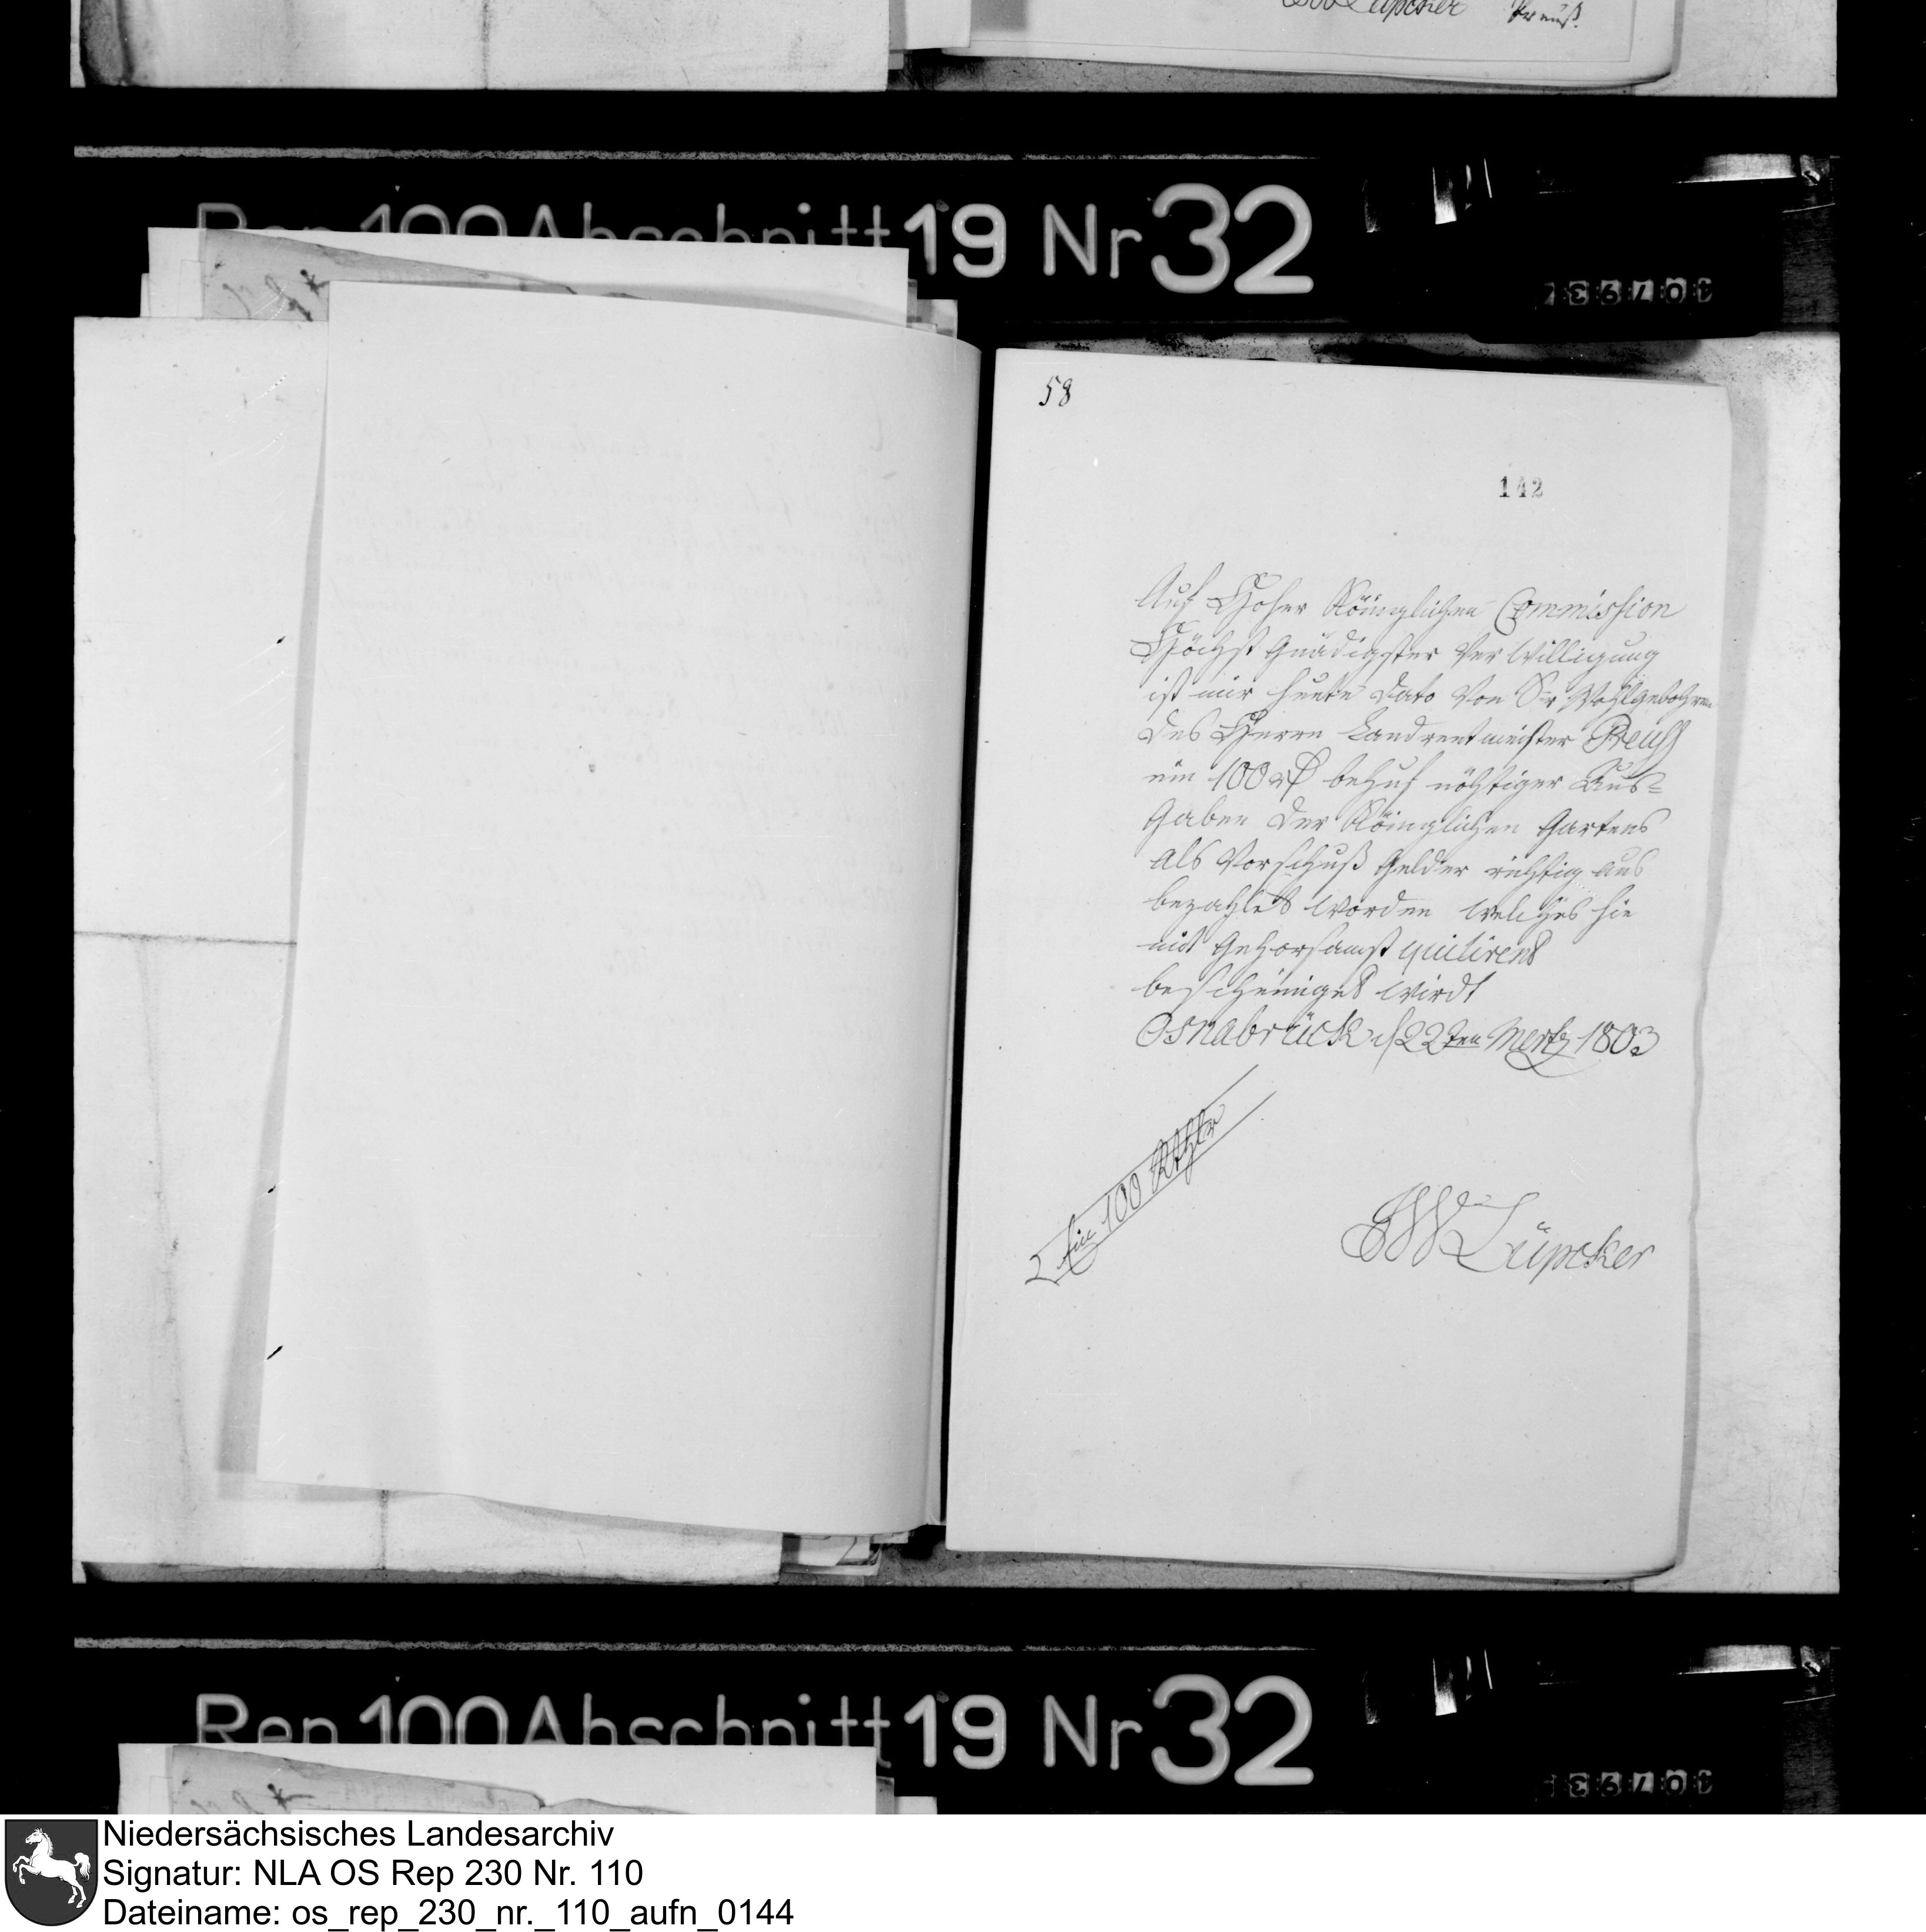 WLüpcker Preuß.
19 Nr 32
58
142
Auf Hoher Königlichen Commission
Höchst Gnädigster Verwilligung
ist mir heute dato von Sr Wohlgebohren
des Herrn Landrentmeister Preuß
ein 100 rth behuf nöhtiger Aus=
Gaben der Königlichen Gartens
als Vorschuß Gelder richtig aus
bezahlet worden welches hie
mit Gehorsamst quitirent
bescheiniget wirdt
Osnabrück d 22ten Mertz 1803
100 Rthlr
JW Lüpcker
Rep 100 Abschnitt 19 Nr 32
Niedersächsisches Landesarchiv
Signatur: NLA OS Rep 230 Nr. 110
Dateiname: os_rep_230_nr._110_aufn_0144